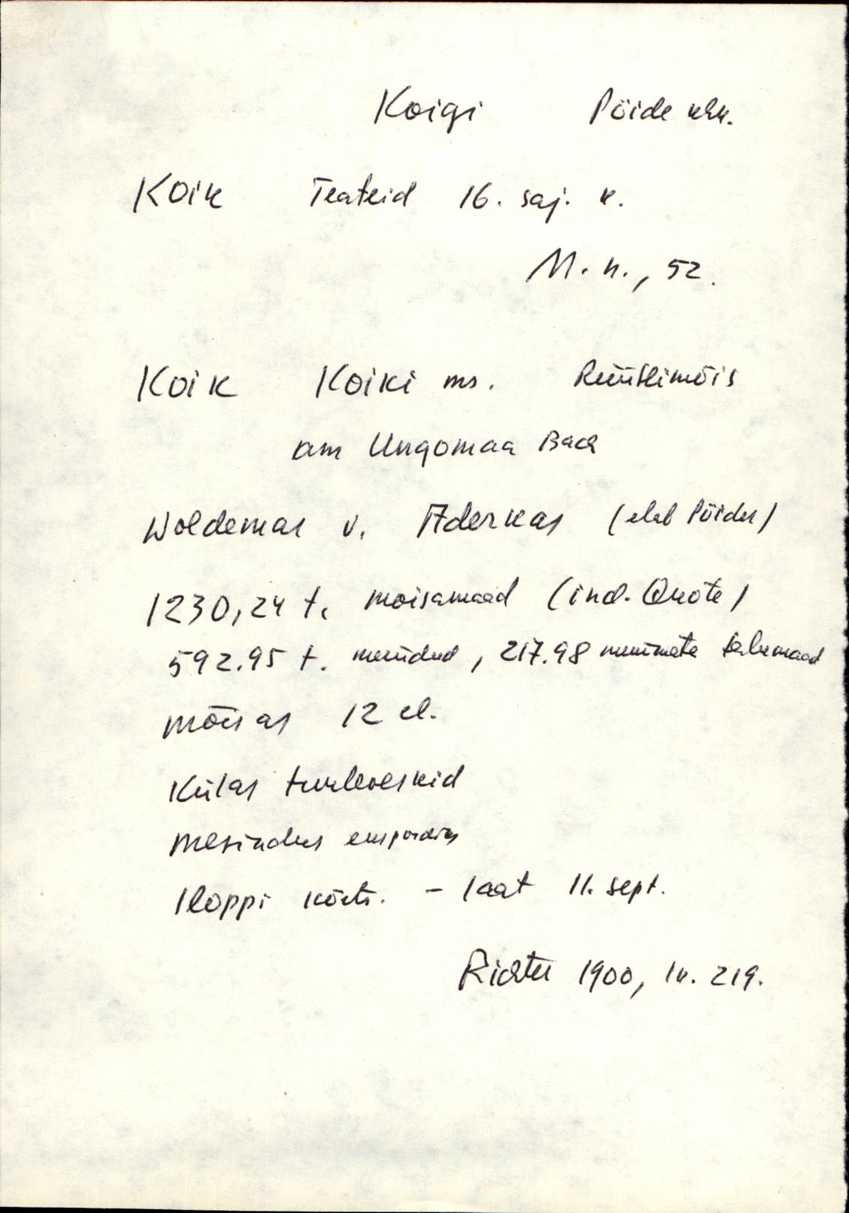 Koigi Pöide khk.
Koik Teateid 16. saj. k.
M. n., 52.
Koik Koiki ms. Rüütlimõis
am Ungomaa Bach
Woldemar v. Aderkas (elab Pöides)
1230,24 t. moisamaad (incl. Quote)
592.95 t. müüdud, 217.98 müümata talumaad
mõisas 12 el.
Külas tuuleveskid
mesindus
Iloppi kõrts. - laat 11. sept.
Richter 1900, lk. 219.